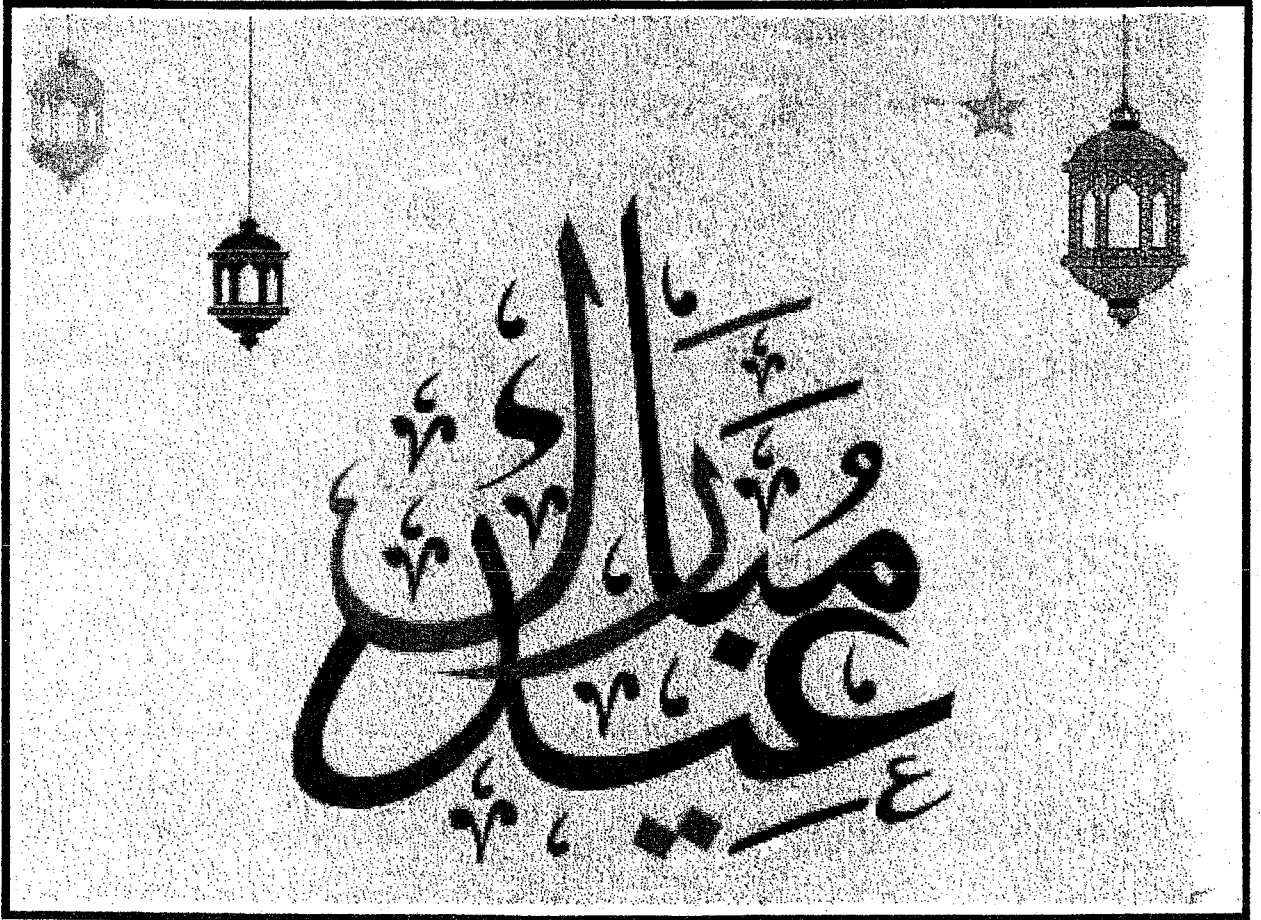 عيد مُبَارك